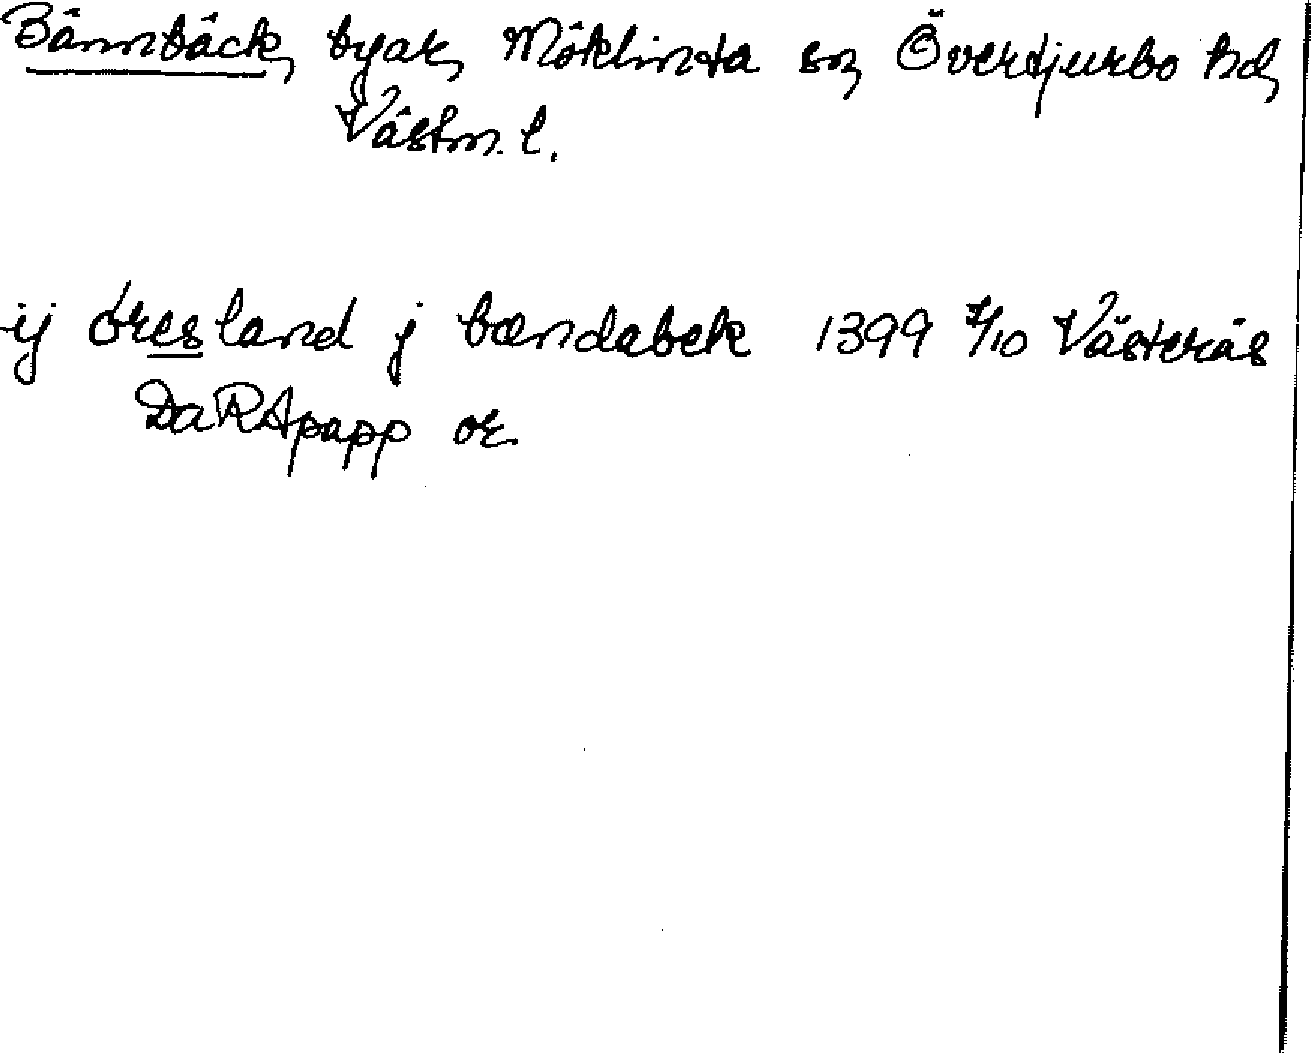 Bännbäck, byar, Möklinta sn, Övertjurbo hd,
Västm. l.
ij öresland j bændabek 1399 7/10 Västerås
DaRApapp or.